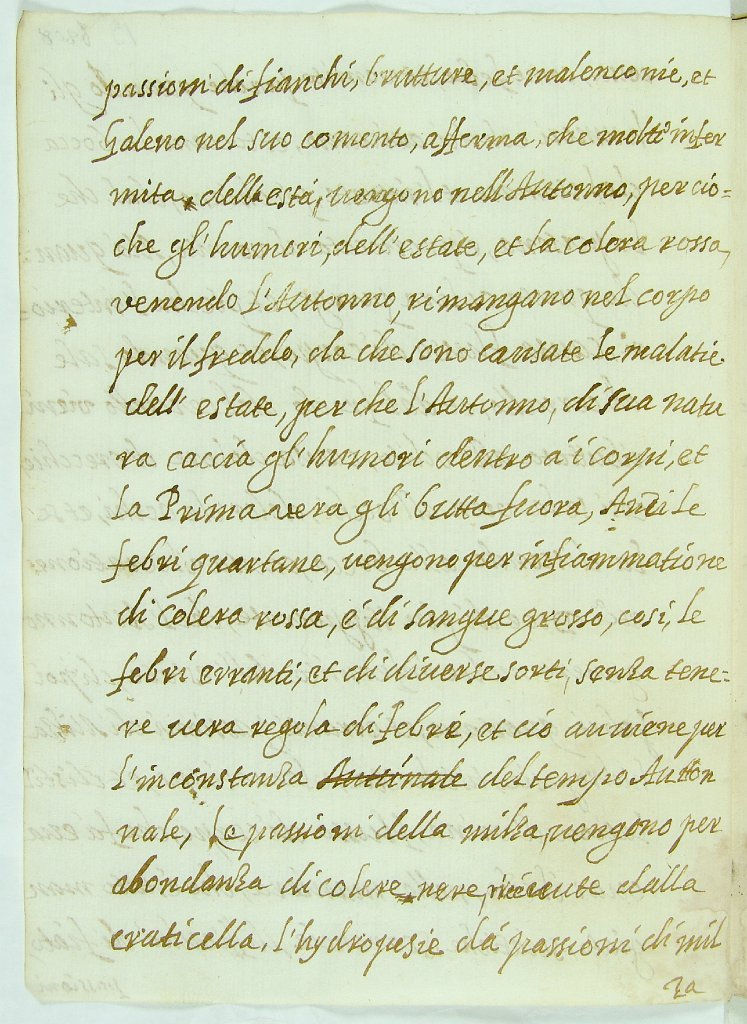 passioni di fianchi, brutture, et malenconie, et
Galeno nel suo comento, afferma, che molti infer
mita, della està, vengono nell'Autonno, per cio=
che gl'humori, dell'estate, et la colera rossa,
venendo l'Autonno, rimangano nel corpo
per il freddo, da che sono causate le malatie
dell' estate, per che l'Autonno, di sua natu
ra caccia gl'humori dentro á i corpi, et
la Prima vera gli butta fuora, Anzi le
febri quartane, vengono per infiammatione
di colera rossa, é di sangue grosso, cosi, le
febri erranti, et di diverse sorti, senza tene=
re vera regola di febre, et ció auviene per
l'inconstanza del tempo Autton
nale, Le passioni della milza, vengono per
abondanza di colere nere, dalla
craticella, l'hydropesie dá passioni di mil
za